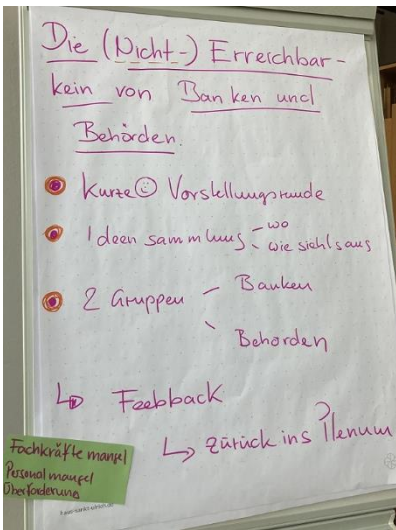 Die (Nicht-) Erreichbar-
kein von Banken und
Behörden.
Kurze ☺ Vorstellungsrunde
Ideensammlung - wo
- wie sieht's aus
2 Gruppen - Banken
- Behörden
↳ Feebback
↳ zurück ins Plenum
Fachkräftemangel
Personalmangel
Überforderung